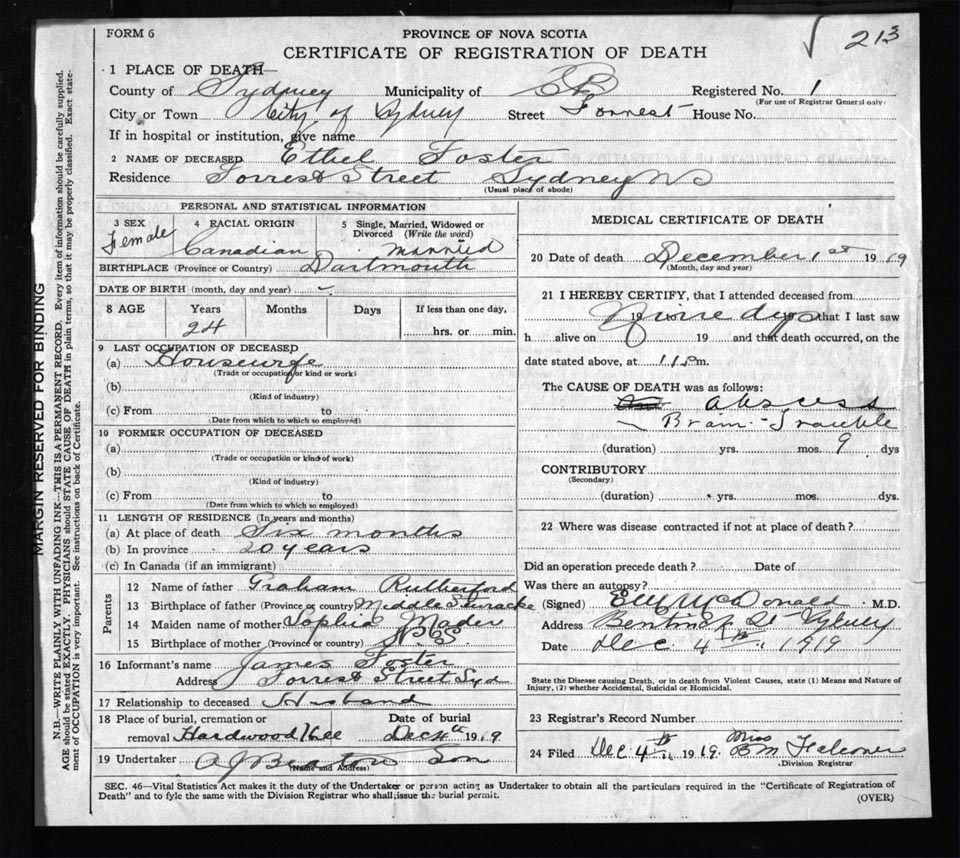 FORM 6
PROVINCE OF NOVA SCOTIA
√ 213
CERTIFICATE OF REGISTRATION OF DEATH
1 PLACE OF DEATH—
County of Sydney Municipality of CB Registered No. 1
(For use of Registrar General only)
City or Town City of Sydney Street Forrest House No.
If in hospital or institution, give name
2 NAME OF DECEASED Ethel Foster
Residence Forrest Street Sydney NS
(Usual place of abode)
PERSONAL AND STATISTICAL INFORMATION
3 SEX Female
4 RACIAL ORIGIN Canadian
5 Single, Married, Widowed or Divorced (Write the word) Married
BIRTHPLACE (Province or Country) Dartmouth
DATE OF BIRTH (month, day and year) –
8 AGE Years Months Days If less than one day,
24 hrs. or min.
9 LAST OCCUPATION OF DECEASED
(a) Housewife
(Trade or occupation or kind or work)
(b)
(Kind of industry)
(c) From to
(Date from which to which so employed)
10 FORMER OCCUPATION OF DECEASED
(a)
(Trade or occupation or kind of work)
(b)
(Kind of industry)
(c) From to
(Date from which to which so employed)
11 LENGTH OF RESIDENCE (In years and months)
(a) At place of death Six months
(b) In province 20 years
(c) In Canada (if an immigrant)
Parents
12 Name of father Graham Rutherford
13 Birthplace of father (Province or country) Middle
14 Maiden name of mother Sophia Mader
15 Birthplace of mother (Province or country)
16 Informant's name James Foster
Address Forrest Street Syd
17 Relationship to deceased Husband
18 Place of burial, cremation or Date of burial
removal Hardwood Hill Dec 4th 1919
19 Undertaker A J Beaton Son
(Name and Address)
MEDICAL CERTIFICATE OF DEATH
20 Date of death December 1st 1919
(Month, day and year)
21 I HEREBY CERTIFY, that I attended deceased from
19 Nine dys that I last saw
h alive on 19 and that death occurred, on the
date stated above, at 11 P m.
The CAUSE OF DEATH was as follows:
abscess
Brain Trouble
(duration) yrs. mos. 9 dys
CONTRIBUTORY
(Secondary)
(duration) yrs. mos. dys.
22 Where was disease contracted if not at place of death?
Did an operation precede death? Date of
Was there an autopsy?
(Signed) McDonald M.D.
Address Bentinck St Sydney
Date Dec. 4th 1919
State the Disease causing Death, or in death from Violent Causes, state (1) Means and Nature of
Injury, (2) whether Accidental, Suicidal or Homicidal.
23 Registrar's Record Number
24 Filed Dec 4th 1919. Miss B M Falconer
Division Registrar
SEC. 46—Vital Statistics Act makes it the duty of the Undertaker or person acting as Undertaker to obtain all the particulars required in the "Certificate of Registration of
Death" and to fyle the same with the Division Registrar who shall issue the burial permit.
(OVER)
MARGIN RESERVED FOR BINDING
N.B.—WRITE PLAINLY WITH UNFADING INK—THIS IS A PERMANENT RECORD. Every item of information should be carefully supplied.
AGE should be stated EXACTLY. PHYSICIANS should STATE CAUSE OF DEATH in plain terms, so that it may be properly classified. Exact state-
ment of OCCUPATION is very important. See instructions on back of Certificate.